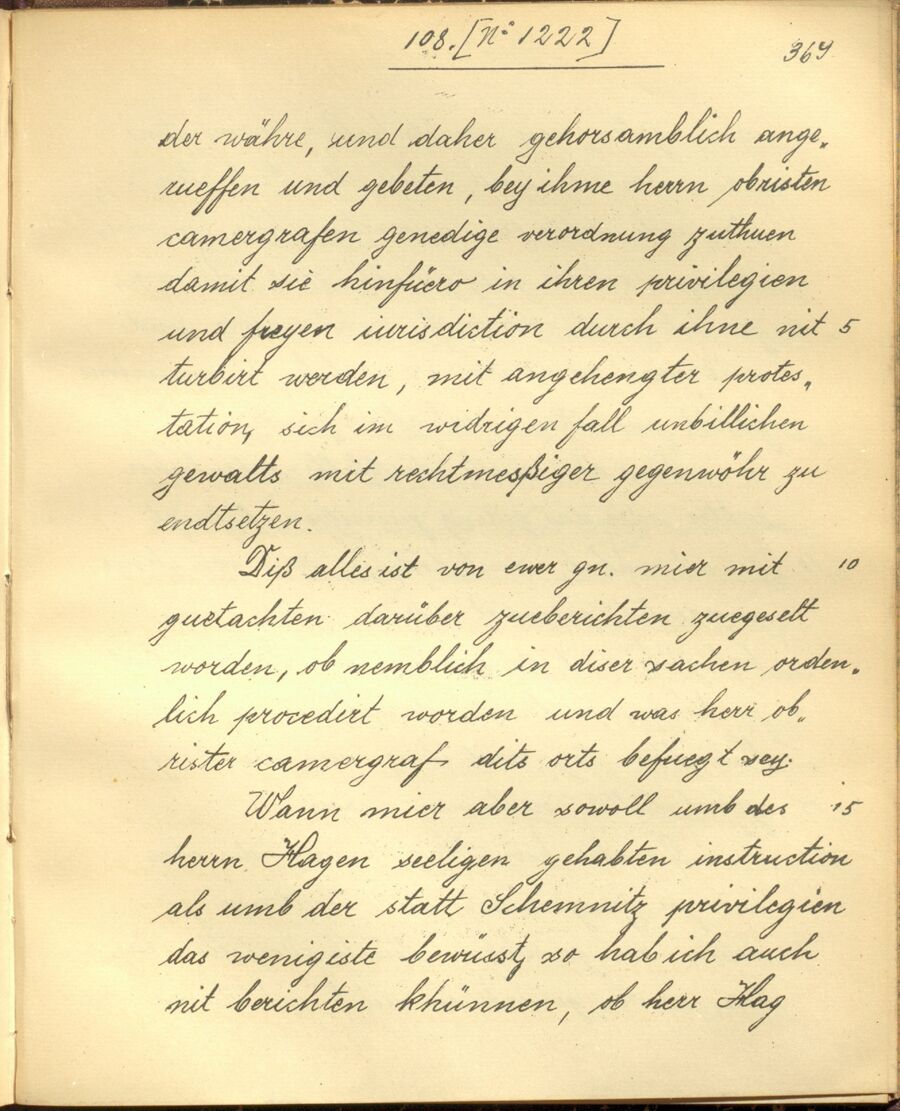 108. [No 1222]
369
der währe, und daher gehorsamblich ange„
rueffen und gebeten, bey ihme herrn obristen
camergrafen genedige verordnung zuthuen
damit sie hinfüro in ihren privilegien
und freyen iurisdiction durch ihne nit 5
turbirt werden, mit angehengter protes„
tation, sich im widrigen fall unbillichen
gewalts mit rechtmeßiger gegenwöhr zu
endtsetzen.
Diß alles ist von ewer gn. mier mit 10
guetachten darüber zueberichten zuegeselt
worden, ob nemblich in diser sachen orden„
lich procedirt worden und was herr ob„
rister camergraf dits orts befuegt sey.
Wann mier aber sowoll umb des 15
herrn Hagen seeligen gehabten instruction
als umb der statt Schemnitz privilegien
das wenigiste bewüsst, so hab ich auch
nit berichten khünnen, ob herr Hag